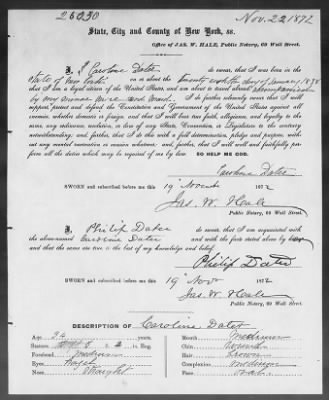 26030
Nov. 22 1872
State, City and County of New York, ss.
Office of JAS. W. HALE, Public Notary, 69 Wall Street.
I, Caroline Dater do swear, that I was born in the
State of New York on or about the
that I am a legal citizen of the United States, and am about to travel abroad
by my And I further solemnly swear that I will
support, protect and defend the Constitution and Government of the United States against all
enemies, whether domestic or foreign, and that I will bear true faith, allegiance and loyalty to the
same, any ordinance, resolution, or law of any State, Convention, or Legislature to the contrary
notwithstanding; and further, that I do this with a full determination, pledge and purpose, with-
out any mental reservation or evasion whatsoever; and further, that I will well and faithfully per-
form all the duties which may be required of me by law. SO HELP ME GOD.
Caroline Dater
SWORN and subscribed before me this 19 November 1872
Jas. W. Hale
Public Notary, 69 Wall Street.
I, Philip Dater do swear, that I am acquainted with
the above-named Caroline Dater and with the facts stated above by
and that the same are true to the best of my knowledge and belief.
Philip Dater
SWORN and subscribed before me this 19 Nov 1872
Jas. W. Hale
Public Notary, 69 Wall Street.
DESCRIPTION OF Caroline Dater
Age 24
Mouth Medium
Stature 5 2 in. Eng.
Chin
Forehead medium
Hair Brown
Eyes
Complexion medium
Nose Straight
Face Oval